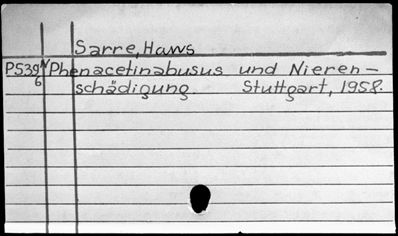 Sarre, Hans
P539 Phenacetinabusus und Nieren-
6 schädigung. Stuttgart, 1958.